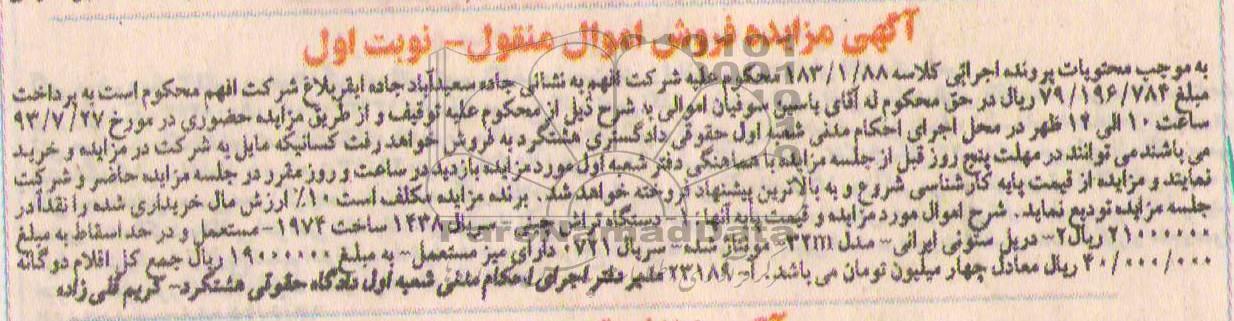 آگهی مزایده فروش اموال منقول - نوبت اول
به موجب محتویات پرونده اجرائی کلاسه ۱۸۳/۱/۸۸ محکوم علیه شرکت الهم به نشانی جاده سعیدآباد جاده ایقربلاغ شرکت الهم محکوم است به پرداخت
مبلغ ۷۹/۱۹۶/۷۸۴ ریال در حق محکوم له آقای یاسین سوفیان اموالی به شرح ذیل از محکوم علیه توقیف و از طریق مزایده حضوری در مورخ ۹۳/۷/۲۷
ساعت ۱۰ الی ۱۲ ظهر در محل اجرای احکام مدنی شعبه اول حقوقی دادگستری هشتگرد به فروش خواهد رفت کسانیکه مایل به شرکت در مزایده و خرید
می باشند می توانند در مهلت پنج روز قبل از جلسه مزایده با هماهنگی دفتر شعبه اول مورد مزایده بازدید در ساعت و روز مقرر در جلسه مزایده حاضر و شرکت
نمایند و مزایده از قیمت پایه کارشناسی شروع و به بالاترین پیشنهاد فروخته خواهد شد. برنده مزایده مکلف است ۱۰٪ ارزش مال خریداری شده را نقداً در
جلسه مزایده تودیع نماید. شرح اموال مورد مزایده و قیمت پایه آنها: ۱- دستگاه تراش چینی - سریال ۱۴۳۸ ساخت ۱۹۷۴- مستعمل و در حد اسقاط به مبلغ
۲۱۰۰۰۰۰۰ ریال ۲- دریل ستونی ایرانی - مدل ۳۲m - مونتاژ شده - سریال ۰۷۲۱ دارای میز مستعمل - به مبلغ ۱۹۰۰۰۰۰۰ ریال جمع کل اقلام دوگانه
۴۰/۰۰۰/۰۰۰ ریال معادل چهار میلیون تومان می باشد. آ- ۲۳۱۸۹ مدیر دفتر اجرای احکام مدنی شعبه اول دادگاه حقوقی هشتگرد - کریم قلی زاده
ParsNamadData